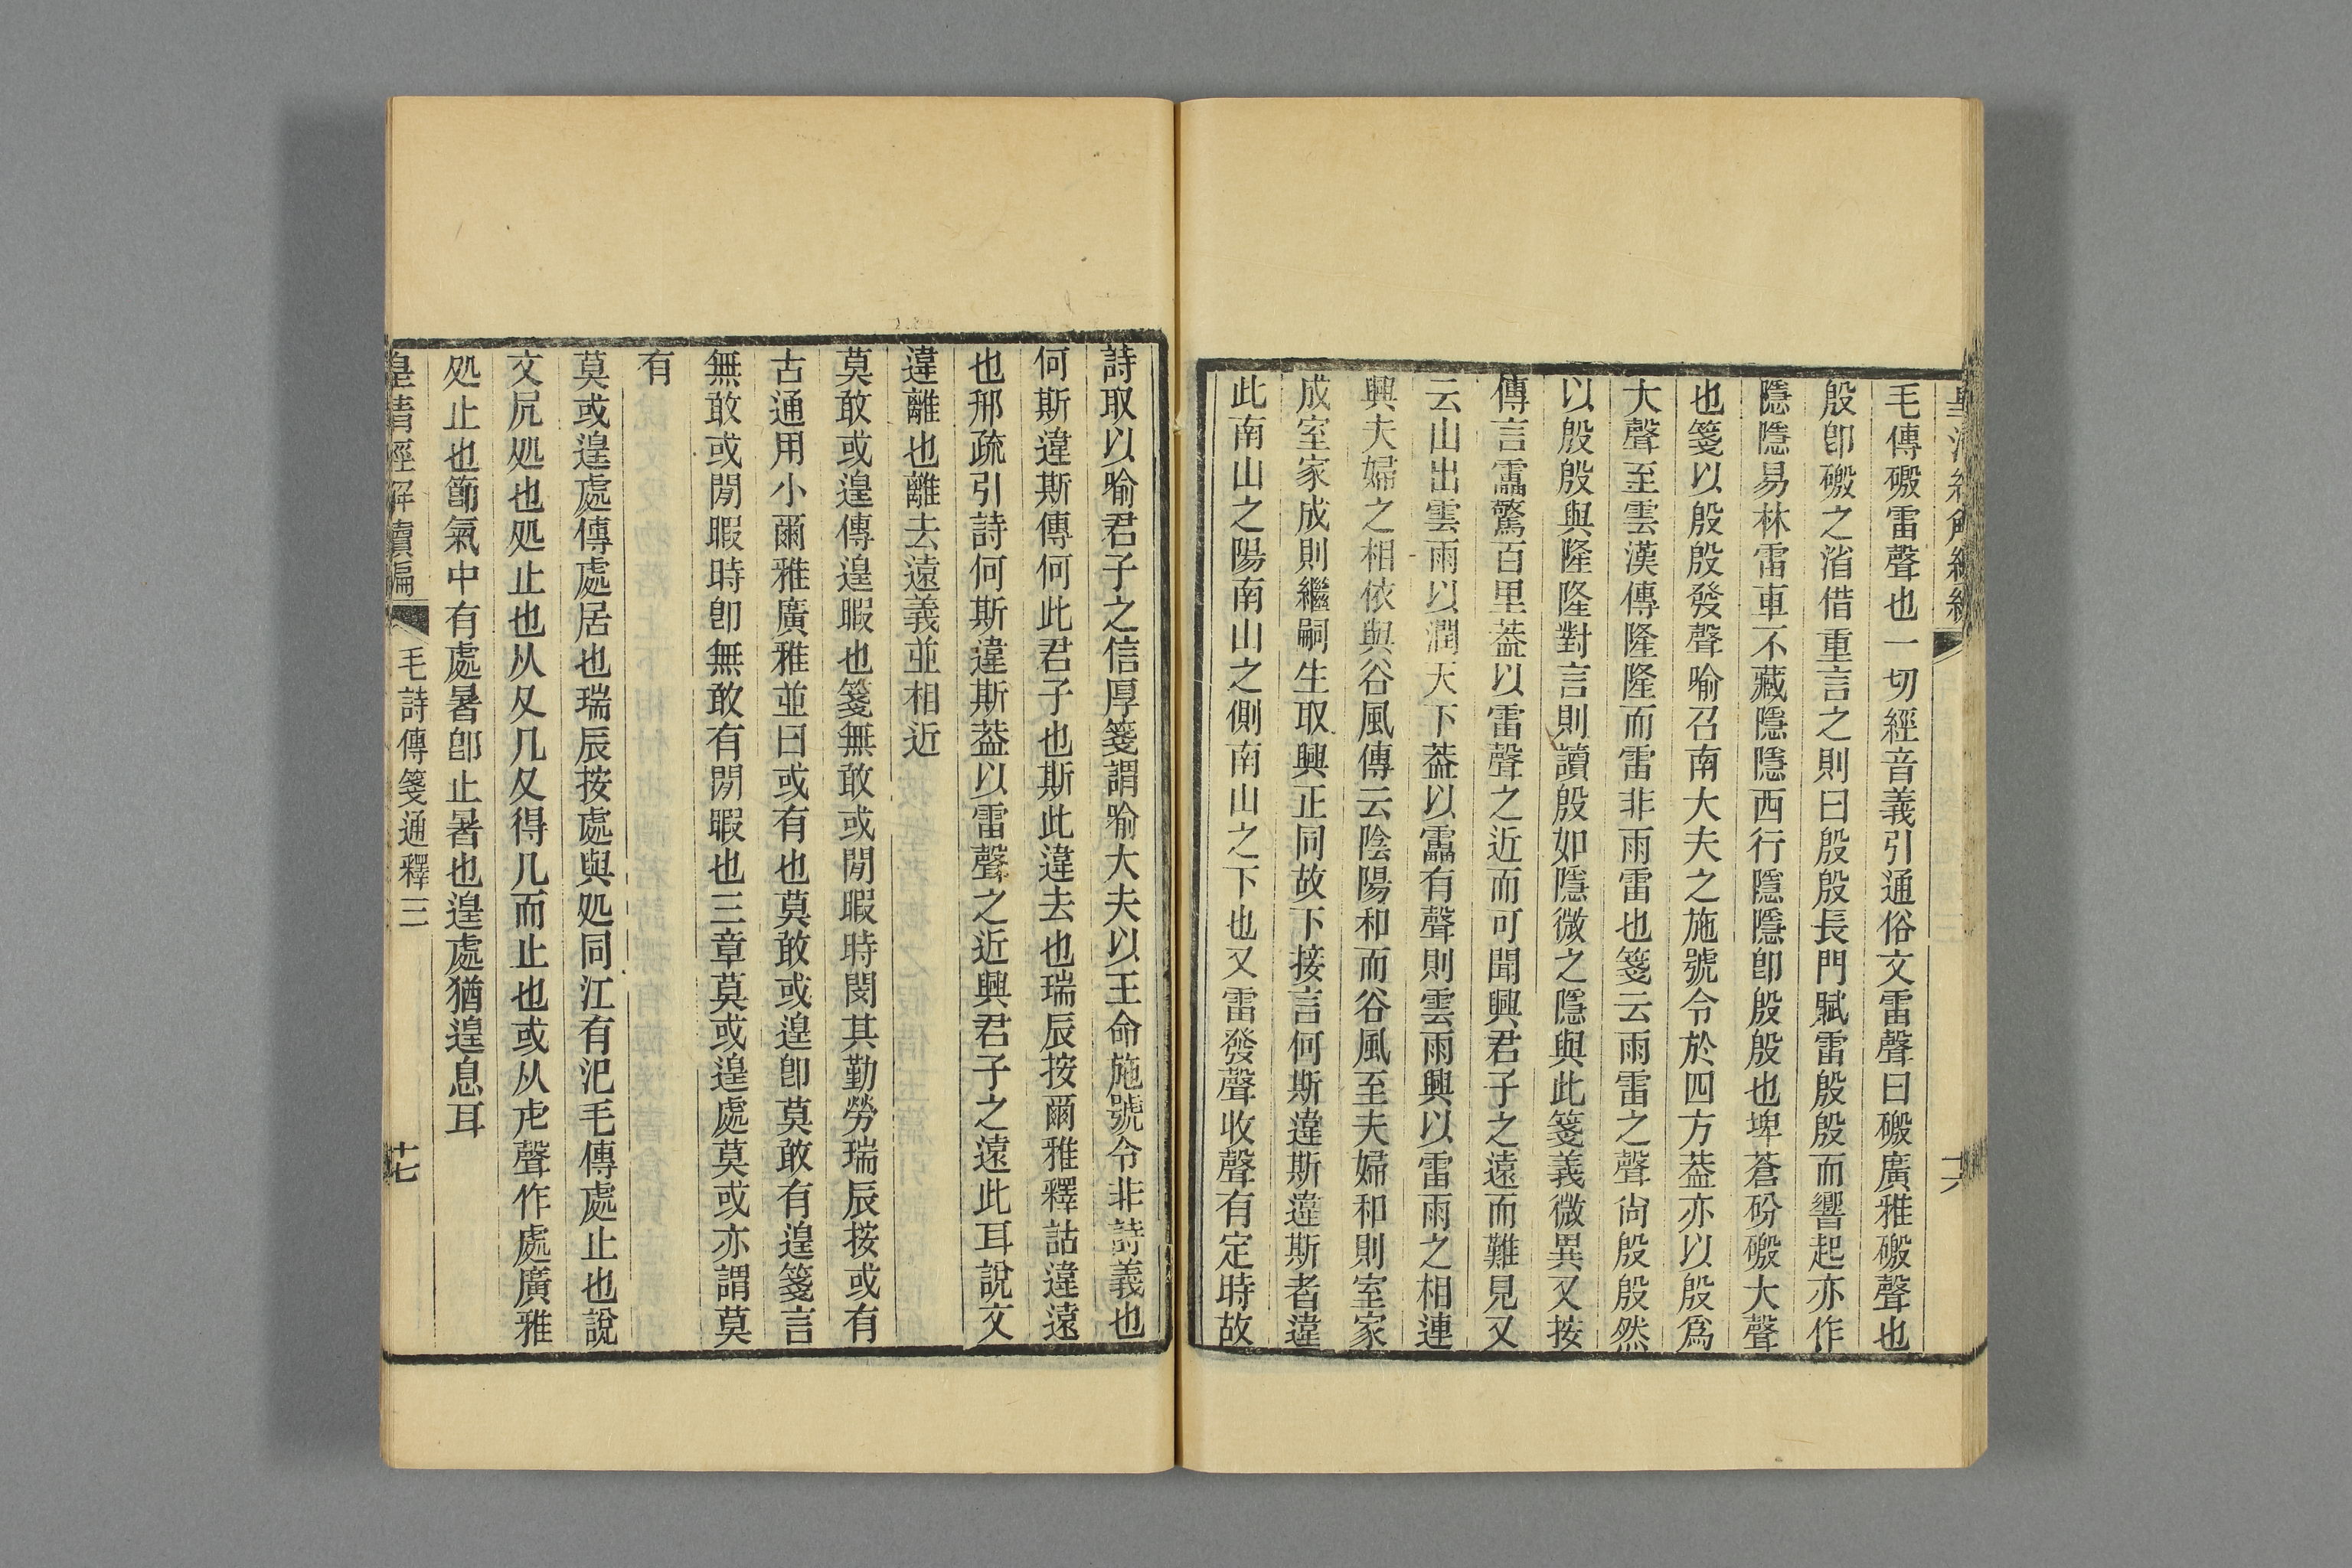 毛傳磤雷聲也一切經音義引通俗文雷聲曰磤廣雅磤聲也
殷卽磤之渻借重言之則曰殷殷長門賦雷殷殷而響起亦作
隱隱易林雷車不藏隱隱西行隱隱卽殷殷也埤蒼砏磤大聲
也箋以殷殷發聲喻召南大夫之施號令於四方葢亦以殷爲
大聲至雲漢傳隆隆而雷非雨雷也箋云雨雷之聲尙殷殷然
以殷殷與隆隆對言則讀殷如隱微之隱與此箋義微異又按
傳言靁驚百里葢以雷聲之近而可聞興君子之遠而難見又
云山出雲雨以潤天下葢以靁有聲則雲雨興以雷雨之相連
興夫婦之相依與谷風傳云陰陽和而谷風至夫婦和則室家
成室家成則繼嗣生取興正同故下接言何斯違斯違斯者違
此南山之陽南山之側南山之下也又雷發聲收聲有定時故
詩取以喻君子之信厚箋謂喻大夫以王命施號令非詩義也
何斯違斯傳何此君子也斯此違去也瑞辰按爾雅釋詁違遠
也邢疏引詩何斯違斯葢以雷聲之近興君子之遠此耳說文
違離也離去遠義並相近
莫敢或遑傳遑暇也箋無敢或閒暇時閔其勤勞瑞辰按或有
古通用小爾雅廣雅並曰或有也莫敢或遑卽莫敢有遑箋言
無敢或閒暇時卽無敢有閒暇也三章莫或遑處莫或亦謂莫
有
莫或遑處傳處居也瑞辰按處與処同江有汜毛傳處止也說
文凥処也処止也从夂几夂得几而止也或从虍聲作處廣雅
処止也節氣中有處暑卽止暑也遑處猶遑息耳
皇清經解續編
毛詩傳箋通釋三
十七